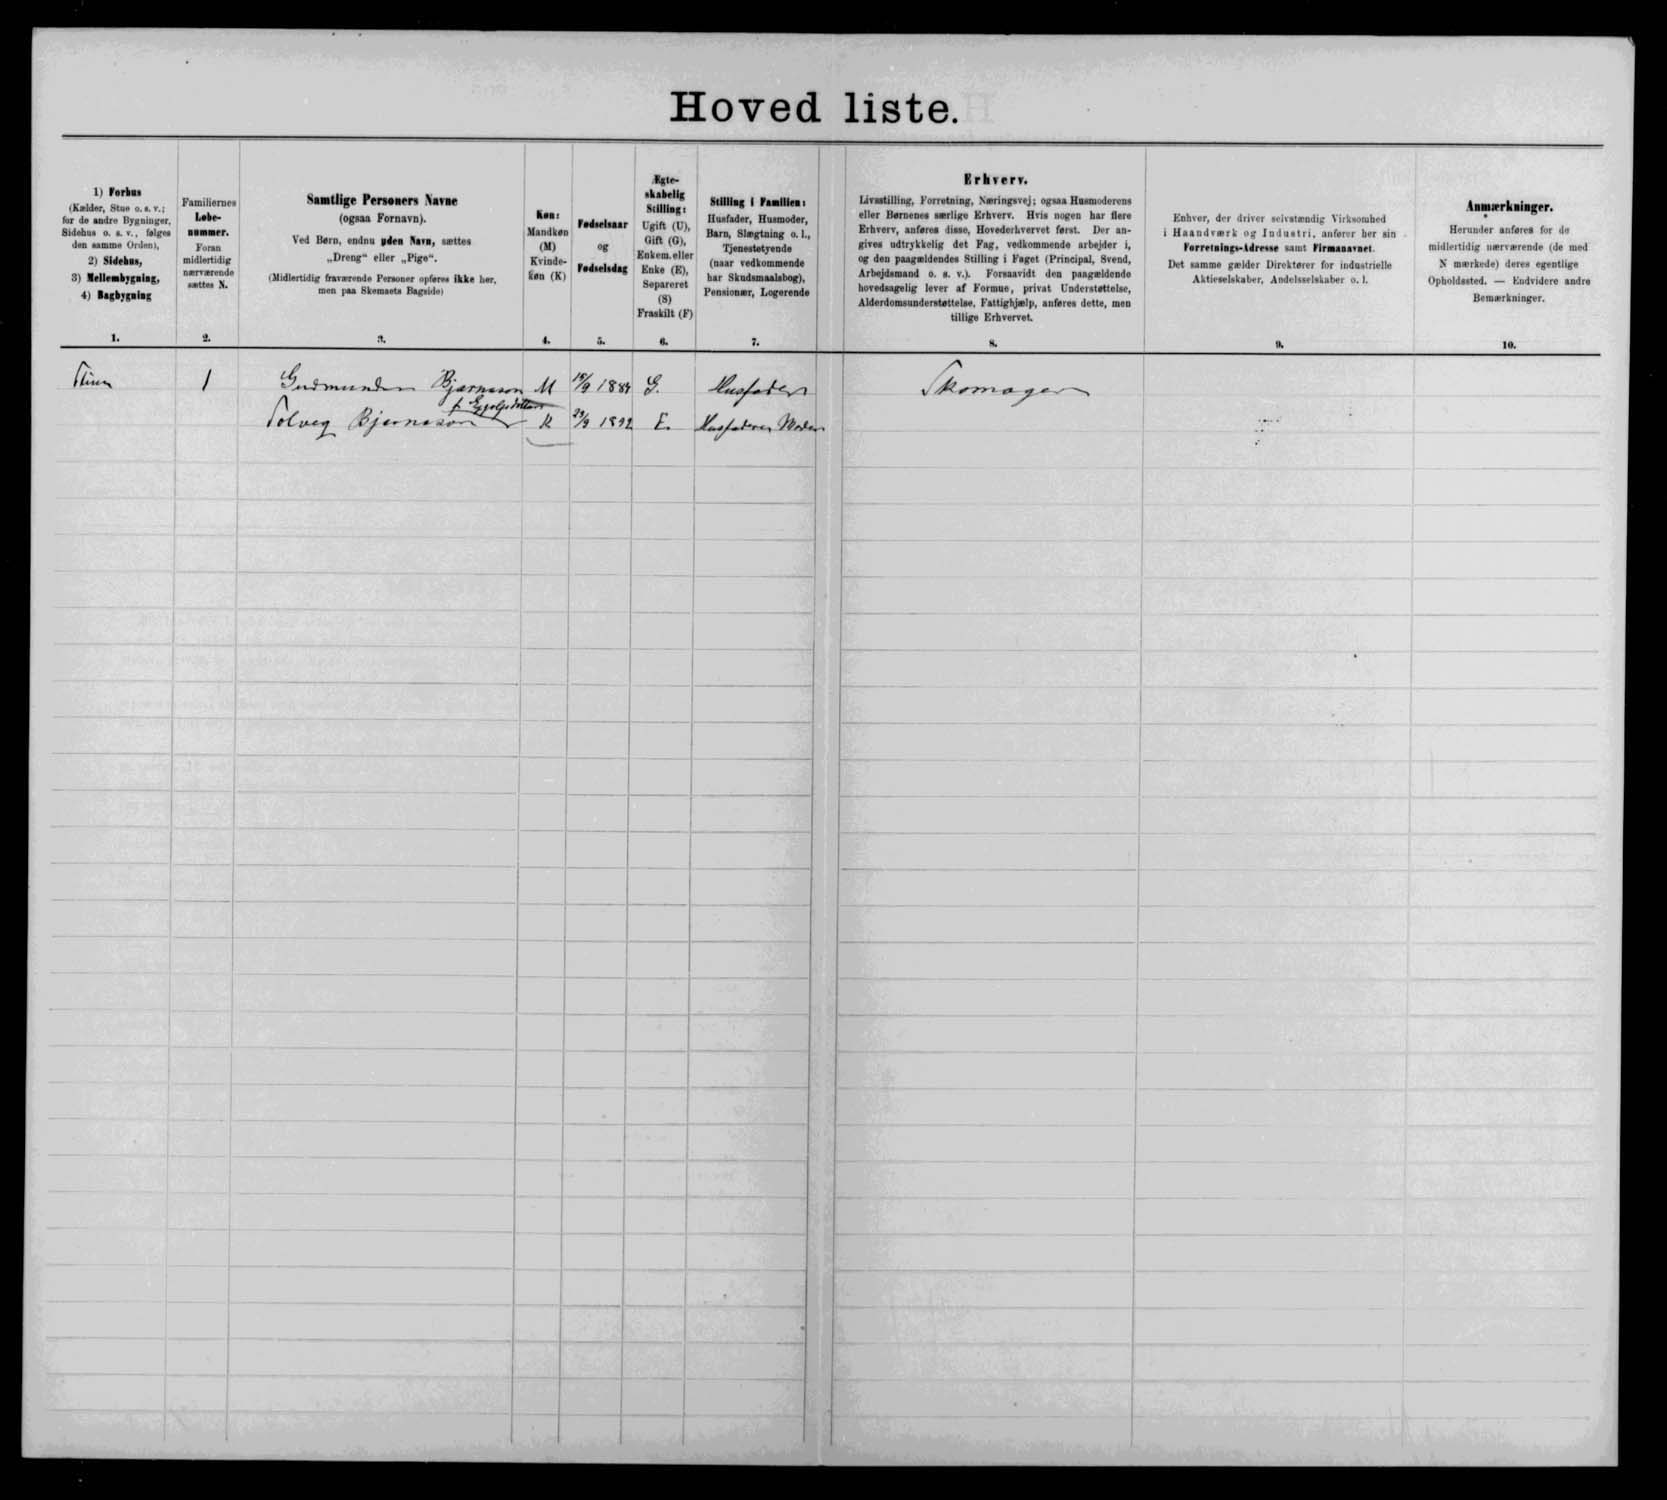 Hoved liste.
1) Forhus
(Kælder, Stue o. s. v.;
for de andre Bygninger,
Sidehus o. s. v., følges
den samme Orden),
2) Sidehus,
3) Mellembygning,
4) Bagbygning
1.
Familiernes
Løbe-
nummer.
Foran
midlertidig
nærværende
sættes N.
2.
Samtlige Personers Navne
(ogsaa Fornavn).
Ved Børn, endnu uden Navn, sættes
„Dreng“ eller „Pige“.
(Midlertidig fraværende Personer opføres ikke her,
men paa Skemaets Bagside)
3.
Køn:
Mandkøn
(M)
Kvinde-
køn (K)
4.
Fødselsaar
og
Fødselsdag
5.
Ægte-
skabelig
Stilling:
Ugift (U),
Gift (G),
Enkem. eller
Enke (E),
Separeret
(S)
Fraskilt (F)
6.
Stilling i Familien:
Husfader, Husmoder,
Barn, Slægtning o. l.,
Tjenestetyende
(naar vedkommende
har Skudsmaalsbog),
Pensionær, Logerende
7.
Erhverv.
Livsstilling, Forretning, Næringsvej; ogsaa Husmoderens
eller Børnenes særlige Erhverv. Hvis nogen har flere
Erhverv, anføres disse, Hovederhvervet først. Der an-
gives udtrykkelig det Fag, vedkommende arbejder i,
og den paagældendes Stilling i Faget (Principal, Svend,
Arbejdsmand o. s. v.). Forsaavidt den paagældende
hovedsagelig lever af Formue, privat Understøttelse,
Alderdomsunderstøttelse, Fattighjælp, anføres dette, men
tillige Erhvervet.
8.
Enhver, der driver selvstændig Virksomhed
i Haandværk og Industri, anfører her sin
Forretnings-Adresse samt Firmanavnet.
Det samme gælder Direktører for industrielle
Aktieselskaber, Andelsselskaber o. l.
9.
Anmærkninger.
Herunder anføres for de
midlertidig nærværende (de med
N mærkede) deres egentlige
Opholdssted. — Endvidere andre
Bemærkninger.
10.
1 Gudmundur Bjarnason M 1884 G. Husfader Skomager
f. Eyjolfsdottir
Solveg Bjarnason K E. Husfaderens Moder